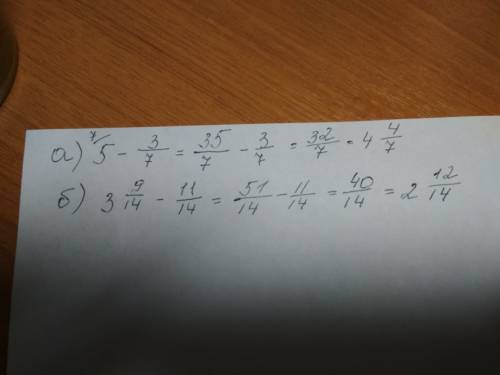 а) 7/ 5 - 3/7 = 35/7 - 3/7 = 32/7 = 4 4/7
б) 3 9/14 - 11/14 = 51/14 - 11/14 = 40/14 = 2 12/14